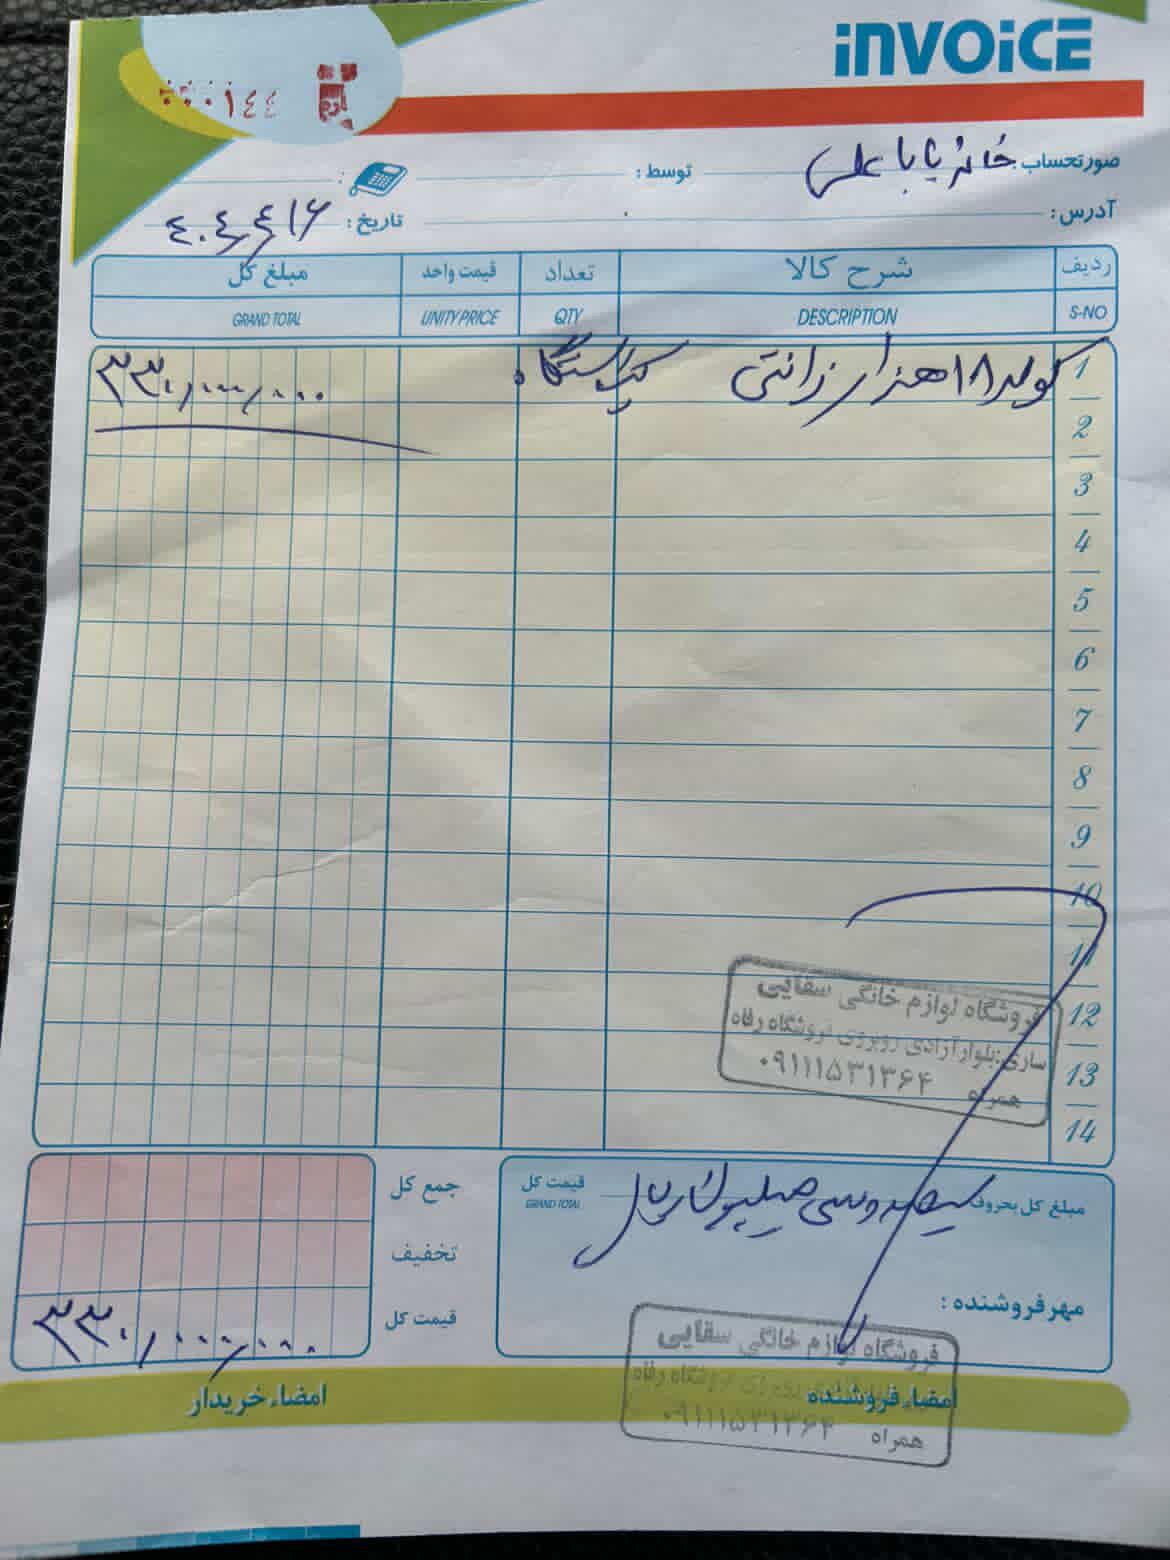 INVOICE
۰۰۰۱۴۴
صورتحساب خانم بابا علی توسط :
آدرس: تاریخ : ۴۰۴/۴/۱۶
ردیف شرح کالا تعداد قیمت واحد مبلغ کل
S-NO DESCRIPTION QTY UNITY PRICE GRAND TOTAL
1 کولر ۱۸ هزار زانتی یکدستگاه ۳۳۰/۰۰۰/۰۰۰
2
3
4
5
6
7
8
9
10
11
12
13
14
فروشگاه لوازم خانگی سقایی
ساری:بلوار آزادی روبروی فروشگاه رفاه
همراه ۰۹۱۱۱۵۳۱۳۶۴
مبلغ کل بحروف سیصد و سی میلیون ریال قیمت کل
GRAND TOTAL
جمع کل
تخفیف
قیمت کل ۳۳۰/۰۰۰/۰۰۰
مهر فروشنده :
فروشگاه لوازم خانگی سقایی
فروشگاه رفاه
همراه ۰۹۱۱۱۵۳۱۳۶۴
امضاء فروشنده امضاء خریدار